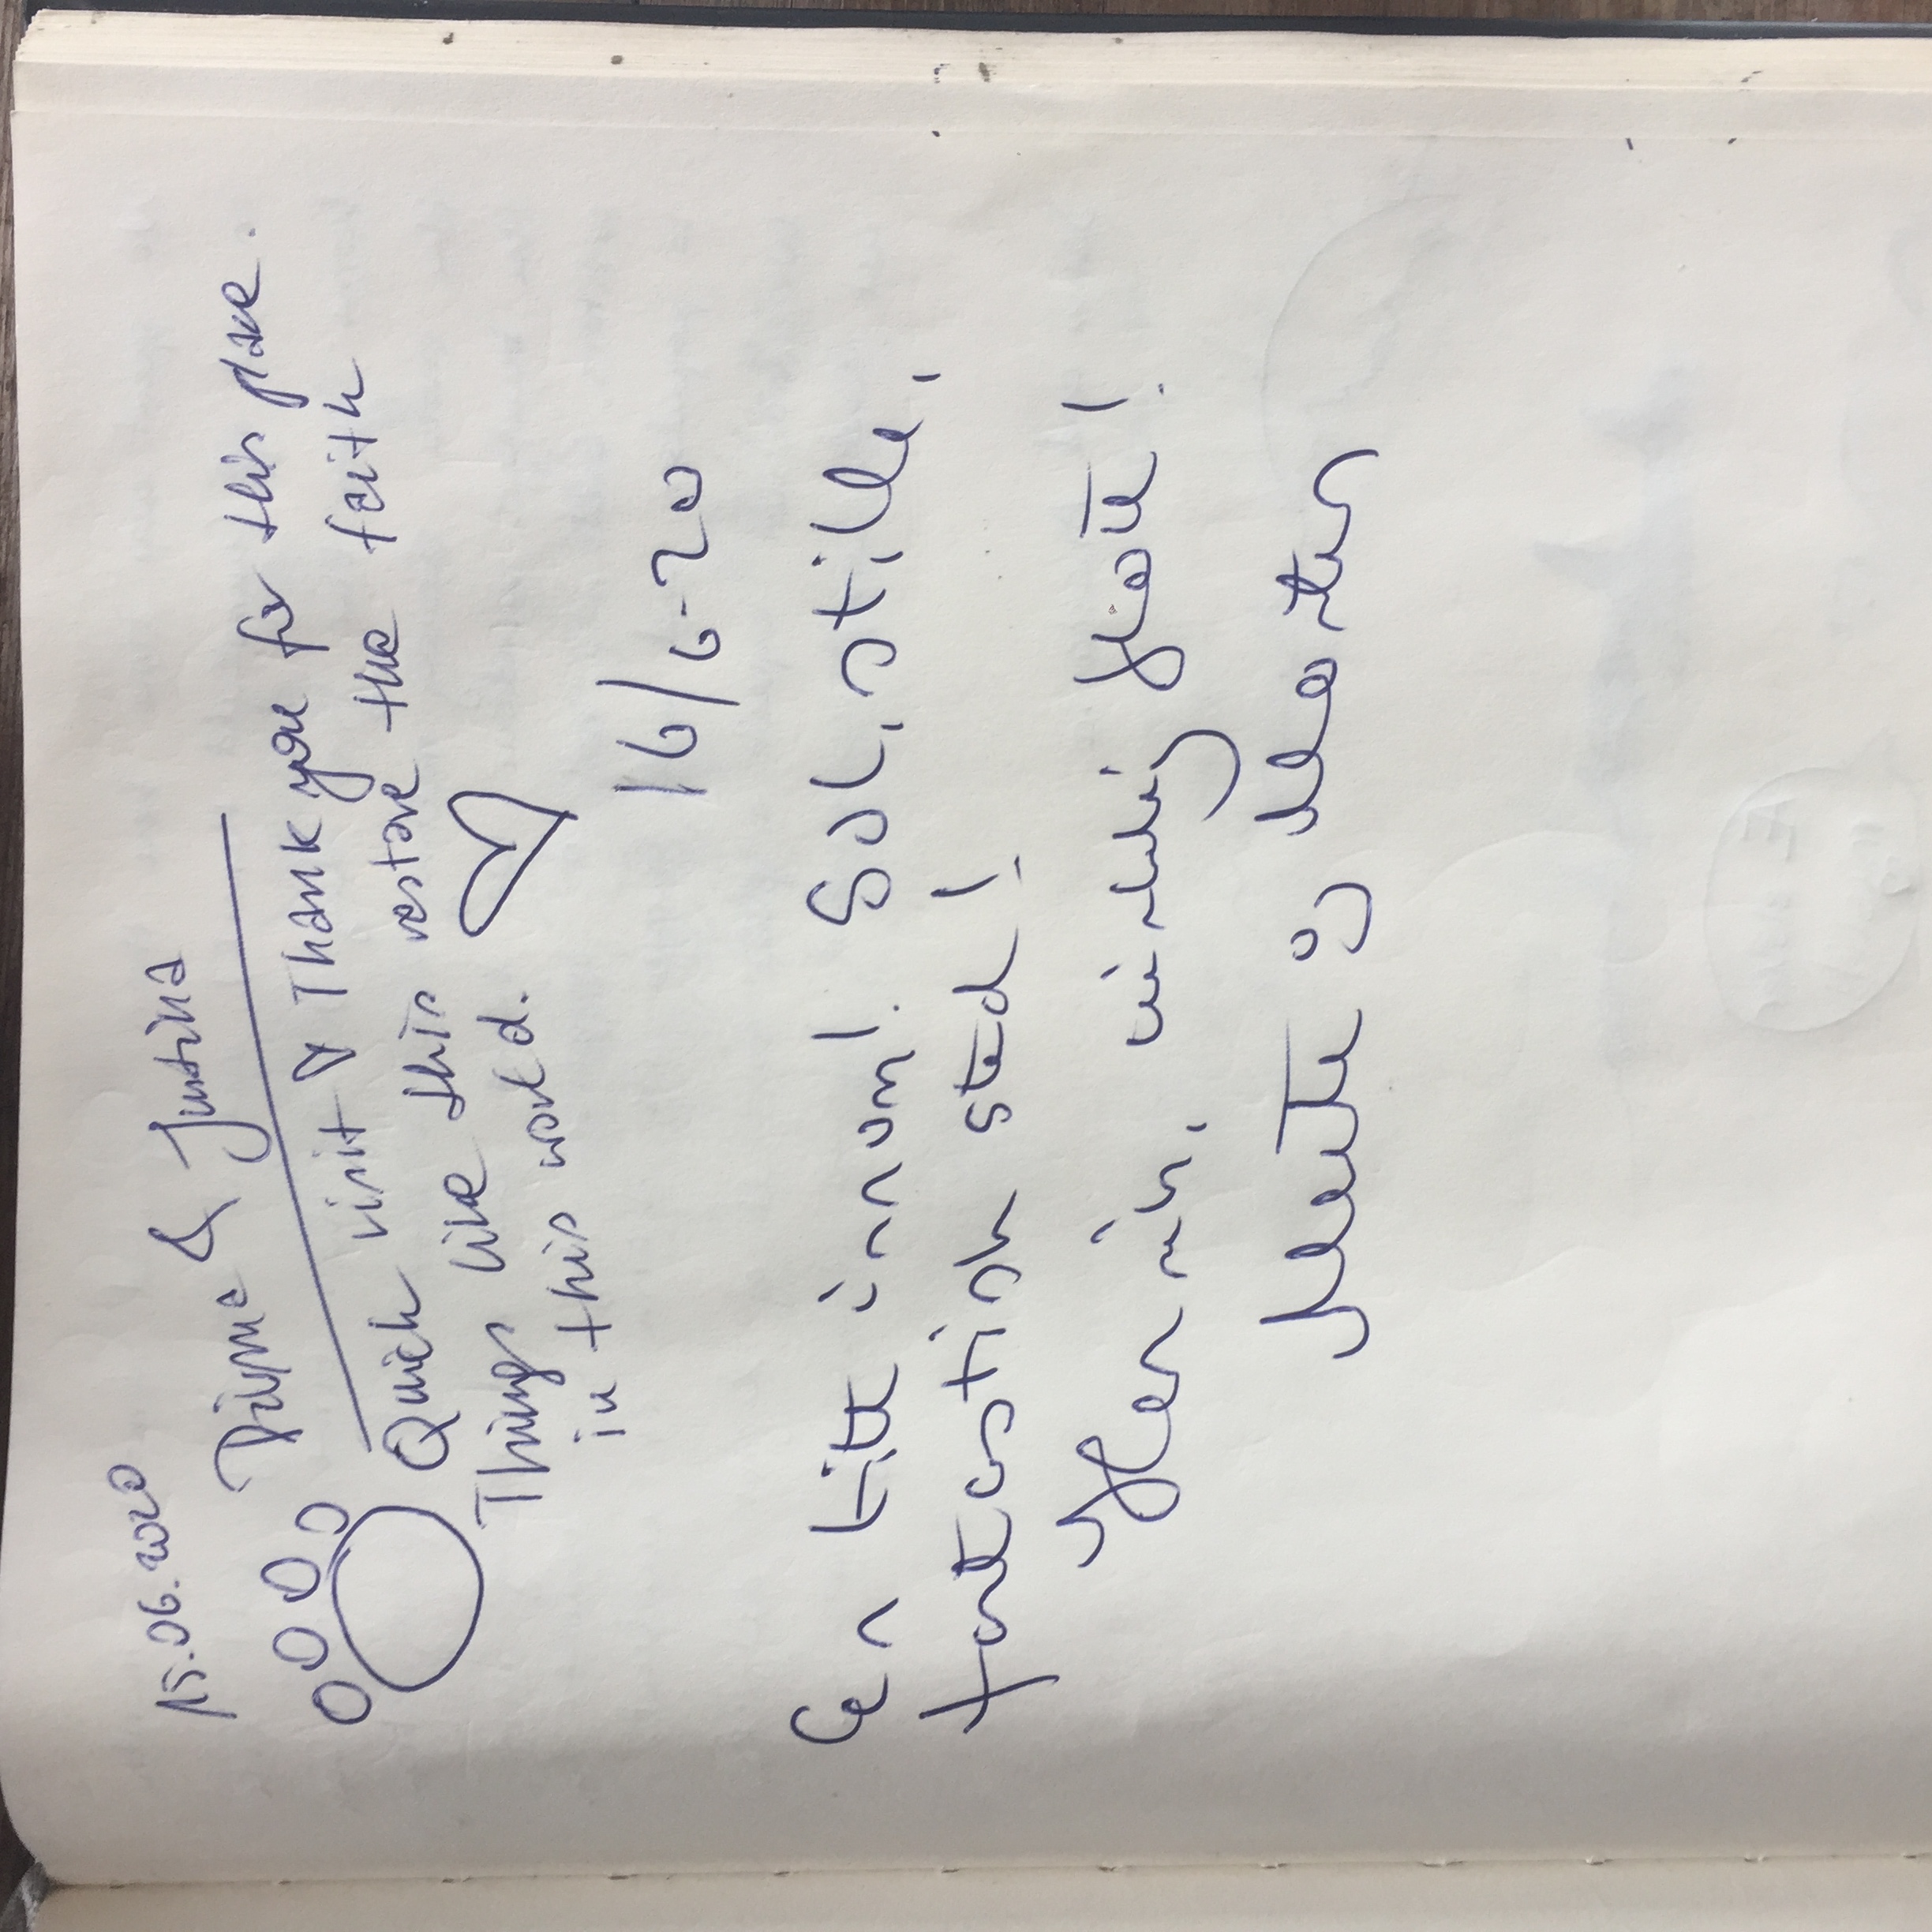 15.06.2020
& Justina
Quick visit Thank you for this place.
Things like this restore the faith
in this world.
16/6-20
En titt innom! Sol, stille,
fantastisk sted!
virkelig flott!
Mette og Morten